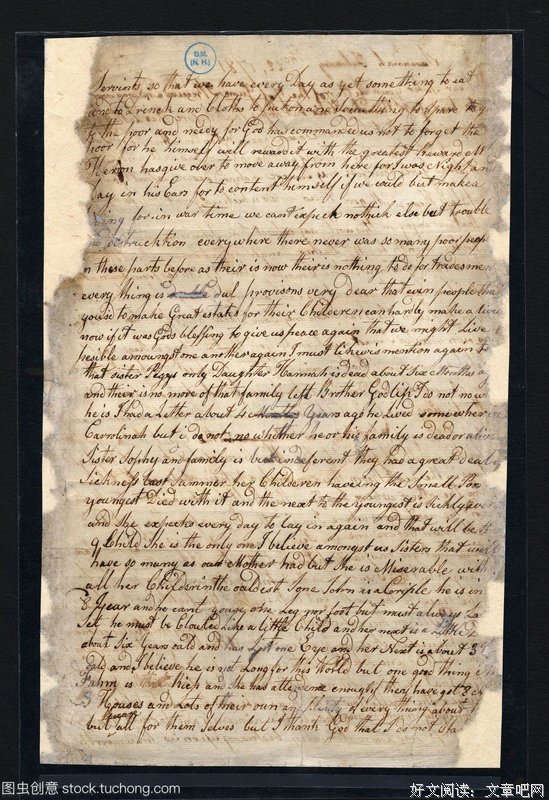 B.M.
(N.H.)
Servints so that we have every Day as yet something to eat
and to drinck and Cloths to put on and something to spare to
the poor and needy for God has commanded us not to forget the
poor for he himself will reward it with the greatest reward
Heron has give over to move away from here for I was Night an
Day in his Ears for to content himself if we could but make a
for in war time we cant expeck nothick else but trouble
and destrucktion everywhere there never was so many poor peop
n these parts before as their is now their is nothing to do for
every thing is dul provisons very dear that even people tha
yousd to make Great estates for their Childeren can hardly make a
now if it was Gods blessing to give us peace again that we might Live
pesible amoungst one another again I must likewis mention again to
that sister Pegys only Daughter Hannah is dead about Six Months a
and their is no more of that family left Brother Godlip I do not no
he is I had a Letter about 4 Years ago he Lived somewher in
Carrolinah but i do not no whether he or his family is dead or alive
Sister Sophy and family is but indeferent they had a great deal
Sickness Last Summer her Childeren haveing the Small Pox
youngest Died with it and the next to the youngest is Sickly
and She expects every day to lay in again and that will be
9 Child She is the only one I believe amongst us Sisters that
have so many as our Mother had but She is Miserable with
all her Childerin the oaldest Sone John is a Criple he is in
8 Year and he cant youse one Leg nor foot but must always
he must be Clouted Like a little Child and her next is a
about Six Years oald and has Lost one Eye and her Next is about 3
oald and I believe he is not Long for this World but one good thing
is Rich and she has attendence enough they have got
Houses and Lots of their own and plenty of every thing about
but all for them Selves but I thank God that I do not
图虫创意 stock.tuchong.com
好文阅读：文章吧网